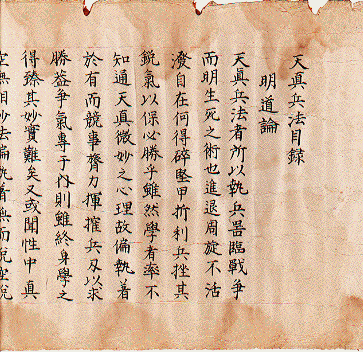 天真兵法目録
明道論
天真兵法者所以執兵器臨戰爭
而明生死之術也進退周旋不活
潑自在何得碎堅甲折利兵挫其
銳氣以保必勝乎雖然學者率不
知通天真微妙之心理故偏執着
於有而競事膂力揮摧兵刃以求
勝益爭氣專于內則雖終身學之
得臻其妙實難矣又或聞性中真
空無相妙法偏執着無而說空說